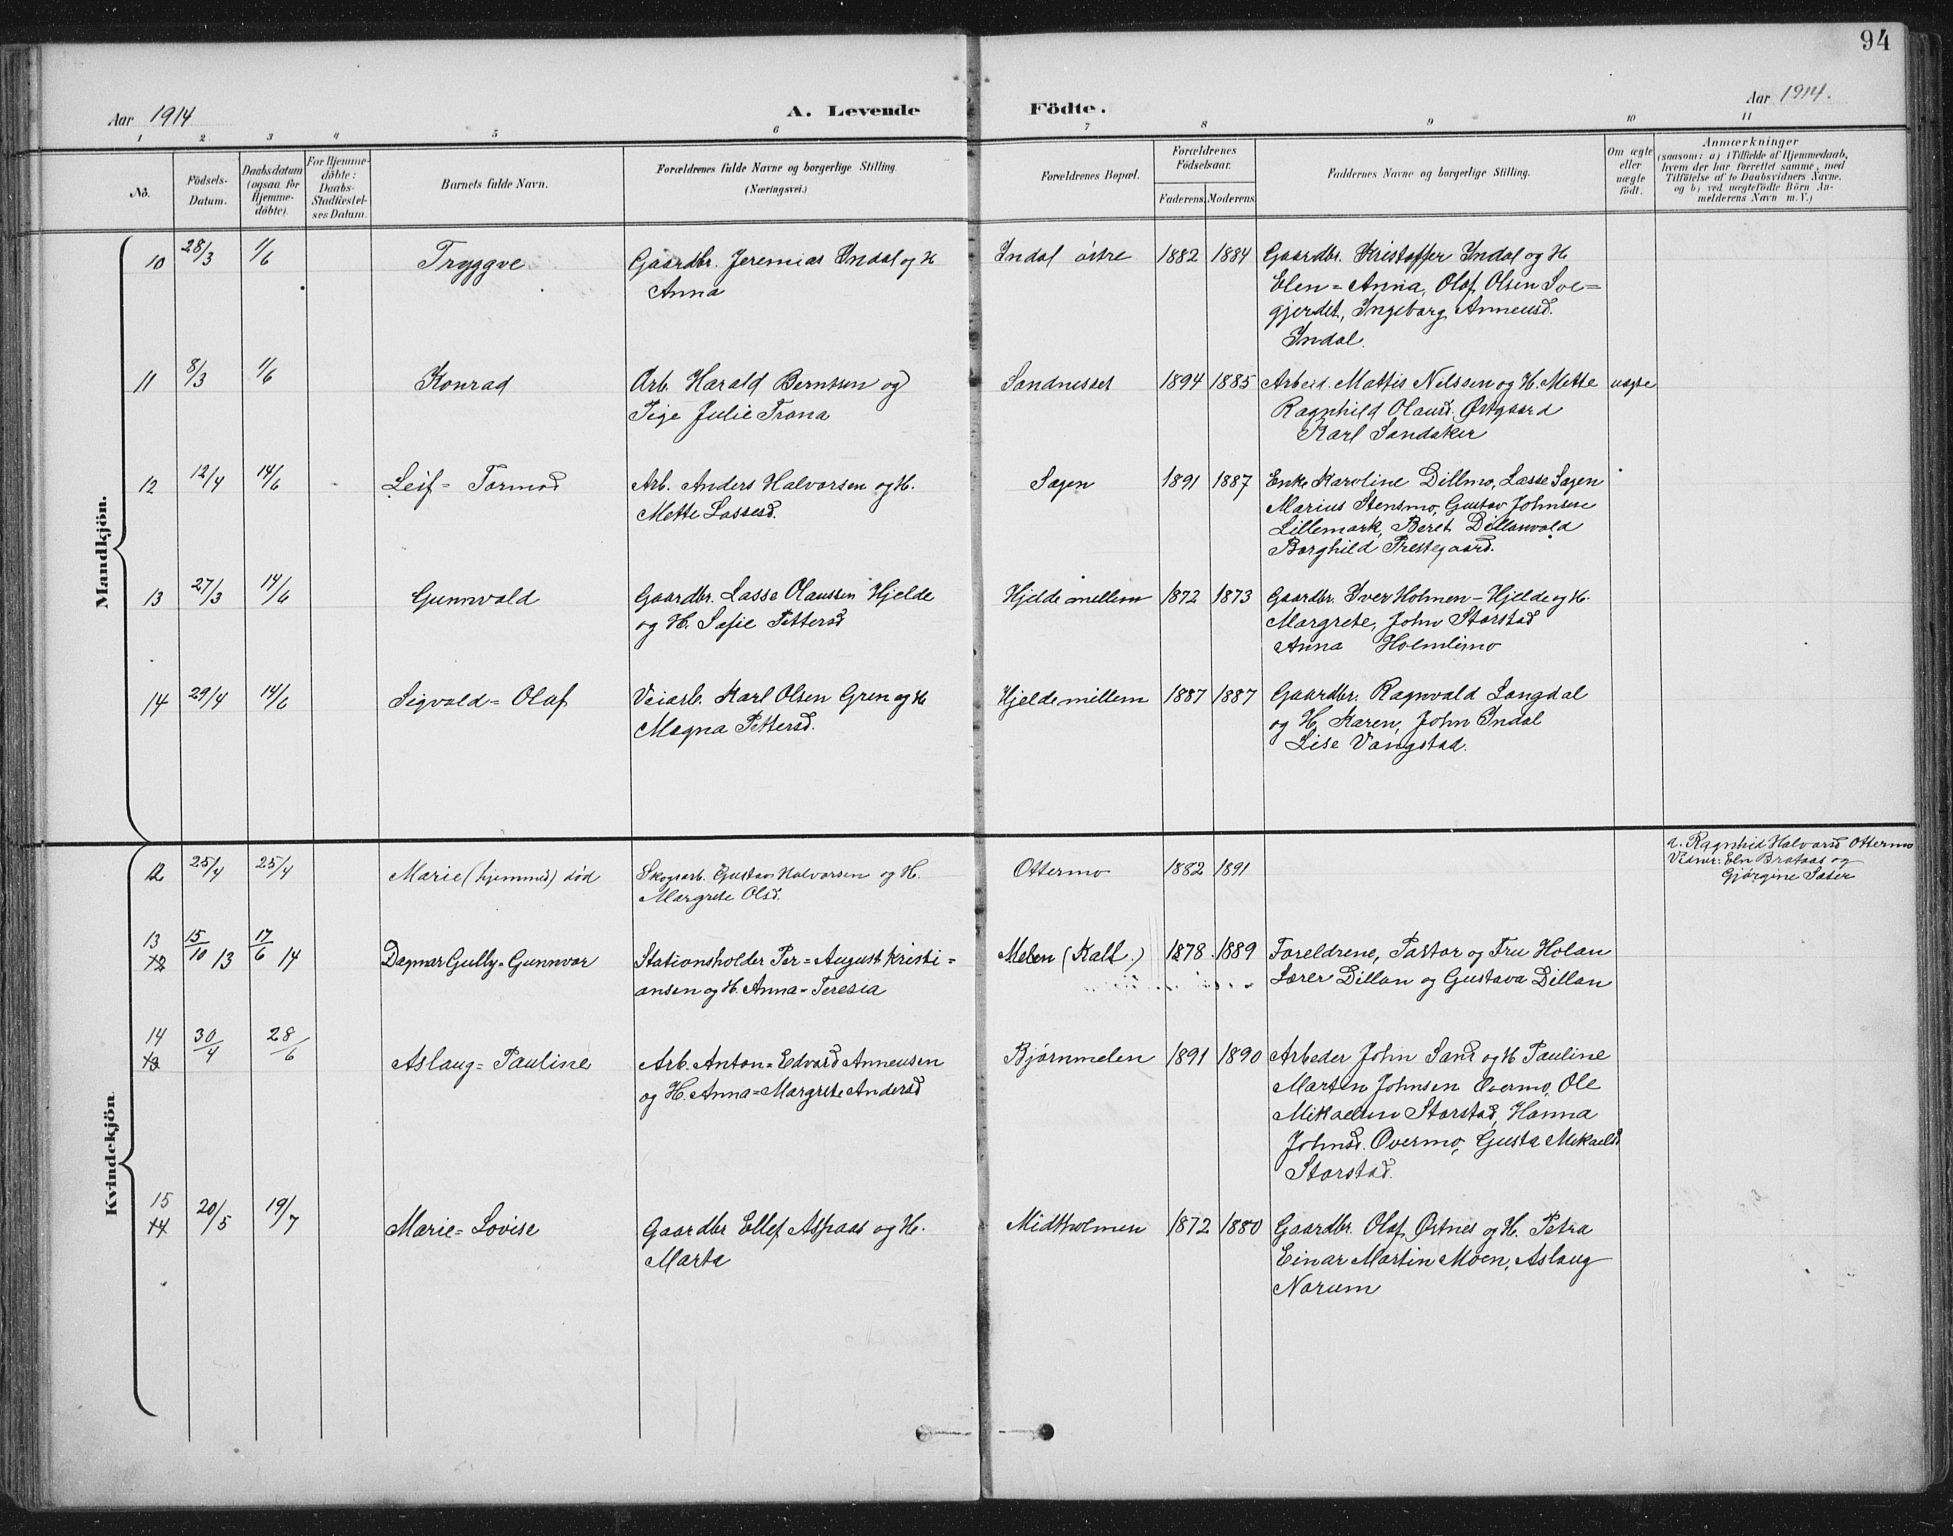 94
Aar 1914
A. Levende Födte.
Aar 1914.
1 2 3 4 5 6 7 8 9 10 11
No.
Födsels-Datum.
Daabsdatum (ogsaa for Hjemme-döbte).
For Hjemme-döbte: Daabs-Stadfæstel-ses Datum.
Barnets fulde Navn.
Forældrenes fulde Navne og borgerlige Stilling. (Næringsvei.)
Forældrenes Bopæl.
Forældrenes Födselsaar.
Faderens. Moderens.
Faddernes Navne og borgerlige Stilling.
Om ægte eller uægte födt.
Anmærkninger
(saasom: a) i Tilfælde af Hjemmedaab,
hvem der har forrettet samme, med
Tilföielse af to Daabsvidners Navne,
og b) ved uægtefödte Börn An-
melderens Navn m. V.)
Mandkjön.
10 28/3 1/6 Tryggve Gaardbr. Jeremias Indal og H Indal östre 1882 1884 Gaardbr. Kristoffer Indal og H
Anna Elen=Anna, Olaf Olsen Sve=
gjerdet, Ingeborg Anneusd.
Indal.
11 8/3 1/6 Konrad Arb. Harald Berntsen og Sandnesset 1894 1885 Arbeid. Mattis Nilssen og H. Mette uegte
Pige Julie Trona Ragnhild Olausd. Østgaard
Karl Sandaker
12 12/4 14/6 Leif= Tormod Arb. Anders Halvorsen og H. Sagen 1891 1887 Enke Karoline Dillmo, Lasse Sagen
Mette Lassesd. Marius Stensmo, Gustav Johnsen
Lillemark, Beret Dillanvold
Borghild Prestegaard.
13 27/3 14/6 Gunnvald Gaardbr. Lasse Olaussen Hjelde Hjelde mellem 1872 1873 Gaardbr. Iver Holmen-Hjelde og H.
og H. Sofie Pettersd Margrete, John Storstad
Anna Holmlimo
14 29/4 14/6 Sigvald= Olaf Veiarb. Karl Olsen Gren og H Hjelde mellem 1887 1887 Gaardbr. Ragnvald Langdal
Magna Pettersd. og H. Karen, John Indal
Lise Vangstad.
Kvindekjön.
12 25/4 25/4 Marie (hjemmed) död Skogsarb. Gustav Halvorsen og H. Ottermo 1882 1891 a. Ragnhid Halvorsd Ottermo
Margrete Olsd. Vidner: Eln Brataas og
Gjørgine Sæter
13 12 15/10 13 17/6 14 Dagmar Gully=Gunnvor Stationsholder Per=August Kristi= Melen (Kall.) 1878 1889 Foreldrene, Pastor og Fru Holan
ansen og H. Anna=Teresia Lærer Dillan og Gustava Dillan
14 13 30/4 28/6 Aslaug= Pauline Arb. Anton=Edvard Anneusen Bjørnmelen 1891 1890 Arbeder John Sand og H Pauline
og H. Anna=Margrete Andersd Martin Johnsen Overmo, Ole
Mikaelsen Storstad, Hanna
Johnsd. Overmo, Gusta Mikaelsd
Storstad.
15 14 20/5 19/7 Marie= Lovise Gaardbr Ellef Aspaas og H. Midtholmen 1872 1880 Gaardbr. Olaf Østnes og H. Petra
Marta Einar Martin Moen, Aslaug
Norum